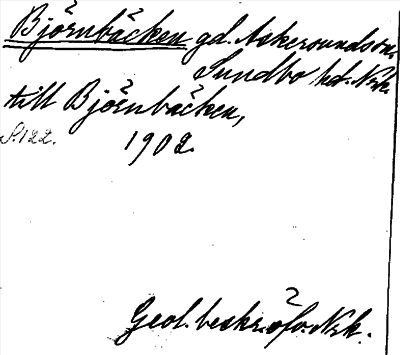 Björnbäcken gd. Askersunds sn.
Sundbo hd. Nrk.
till Björnbäcken,
S. 122. 1902.
Geol. beskr. öfv. Nrk.